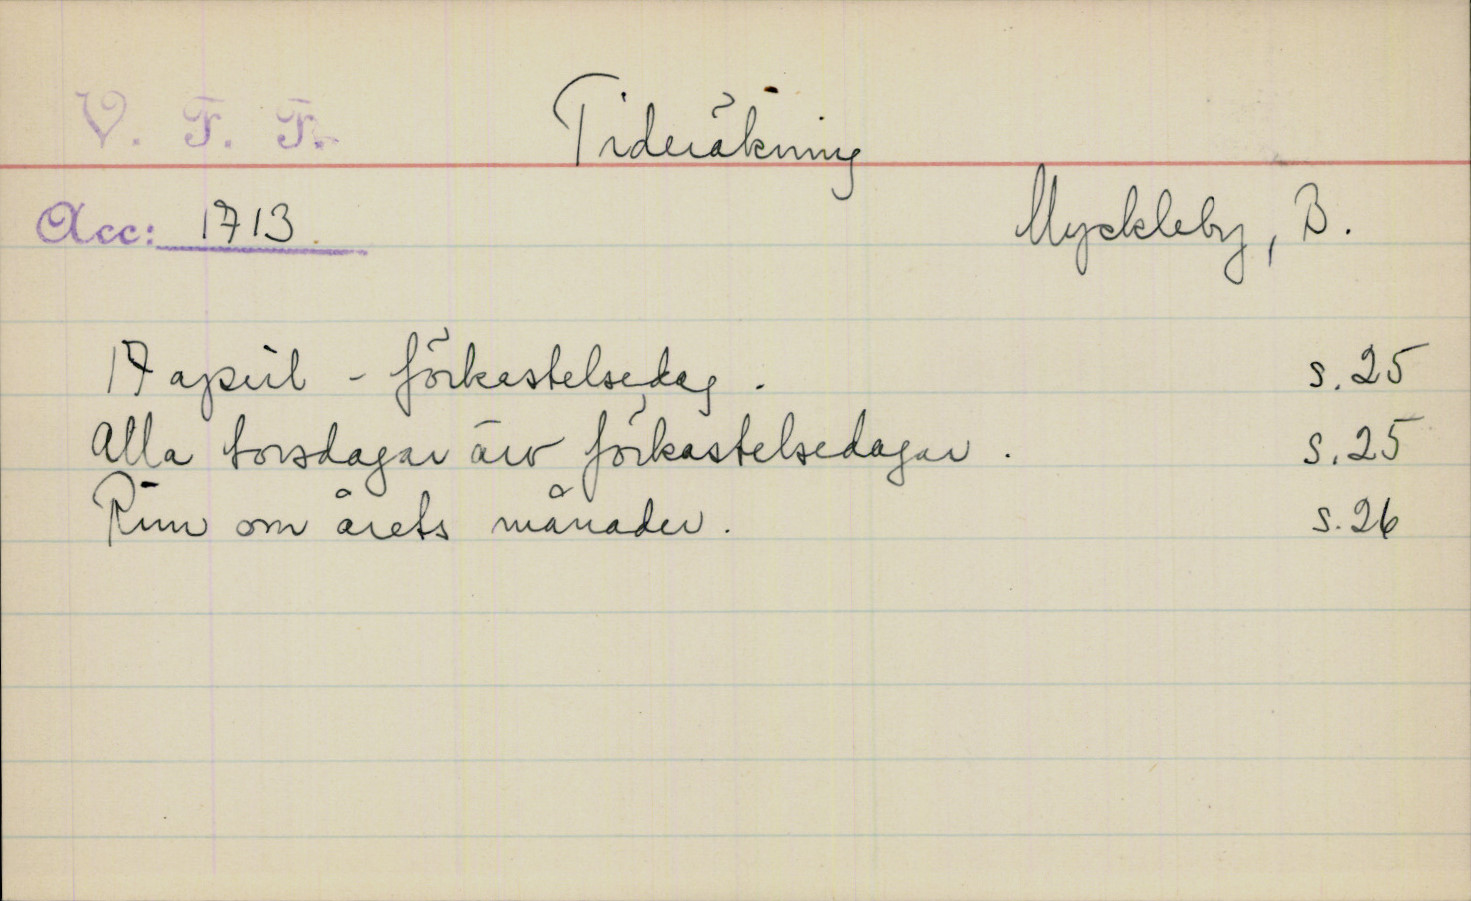 V. F. F.
Tideräkning
Acc: 1713
Myckleby, B.
17 april - förkastelsedag. s. 25
Alla torsdagar äro förkastelsedagar. s. 25
Rim om årets månader. s. 26